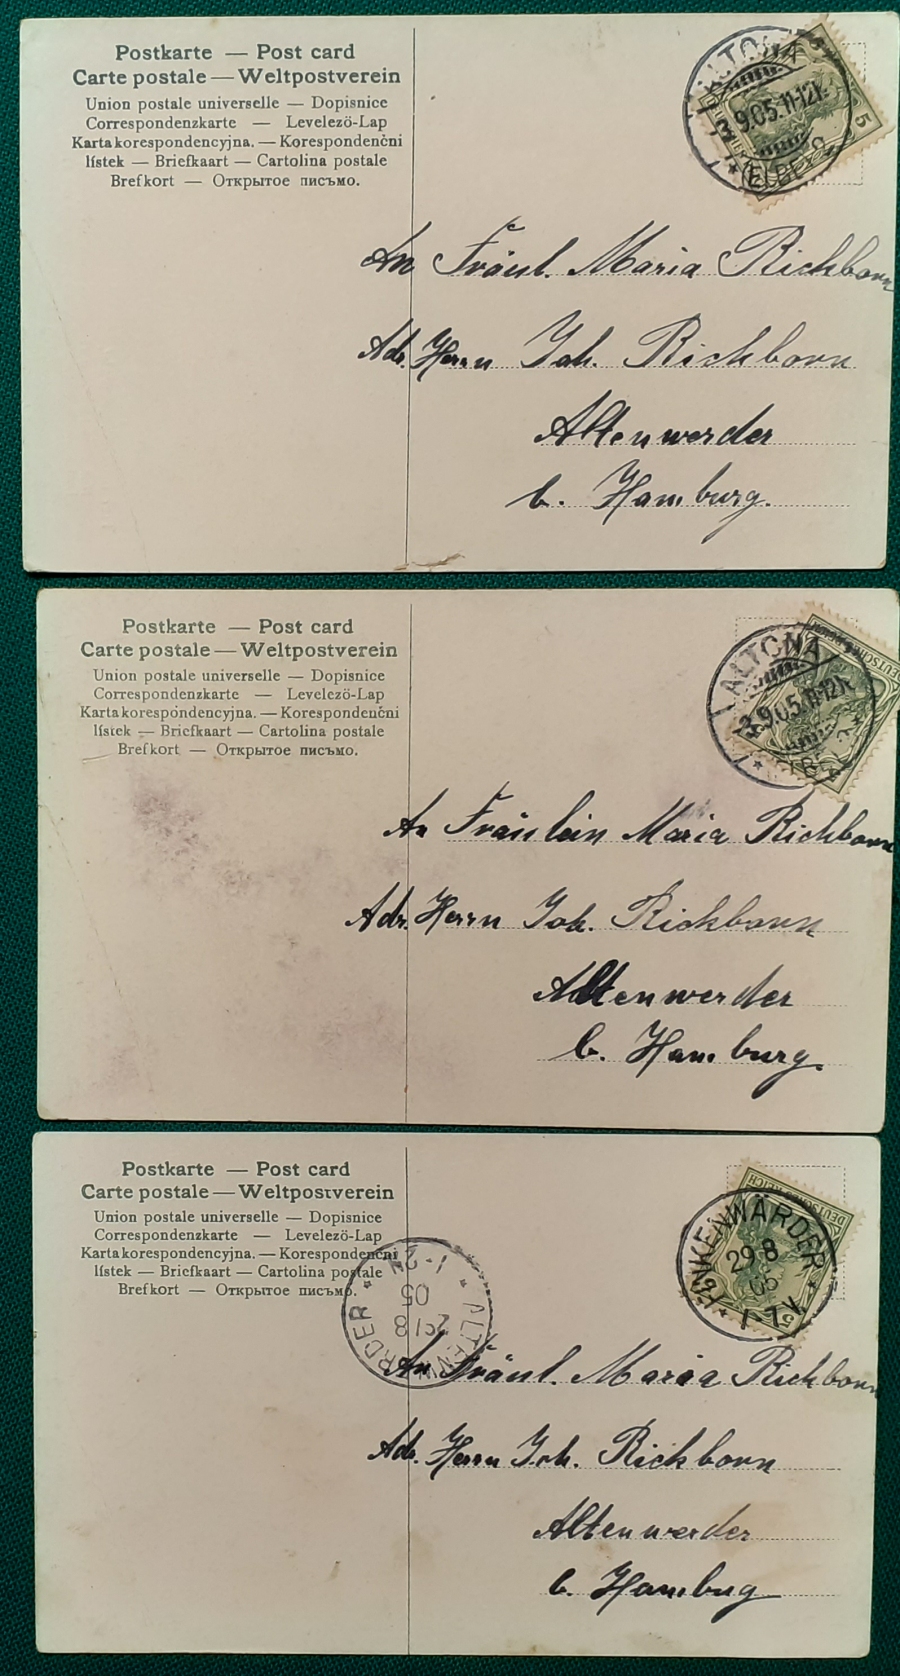 Postkarte — Post card
Carte postale — Weltpostverein
Union postale universelle — Dopisnice
Correspondenzkarte — Levelezö-Lap
Karta korespondencyjna. — Korespondenční
lístek — Briefkaart — Cartolina postale
Brefkort — Открытое письмо.
ALTONA
9.05.11-12V.
(ELBE)
5
An Fräul. Maria Rickborn
Adr. Herrn Joh. Rickborn
Altenwerder
b. Hamburg.
Postkarte — Post card
Carte postale — Weltpostverein
Union postale universelle — Dopisnice
Correspondenzkarte — Levelezö-Lap
Karta korespondencyjna. — Korespondenční
lístek — Briefkaart — Cartolina postale
Brefkort — Открытое письмо.
ALTONA
3.9.05.11-12V.
DEUTSCHES
An Fräulein Maria Rickborn
Adr. Herrn Joh. Rickborn
Altenwerder
b. Hamburg.
Postkarte — Post card
Carte postale — Weltpostverein
Union postale universelle — Dopisnice
Correspondenzkarte — Levelezö-Lap
Karta korespondencyjna. — Korespondenční
lístek — Briefkaart — Cartolina postale
Brefkort — Открытое письмо.
FINKENWÄRDER
29.8
05
DEUTSCHES REICH
5
05
An Fräul. Maria Rickborn
Adr. Herrn Joh. Rickborn
Altenwerder
b. Hambug